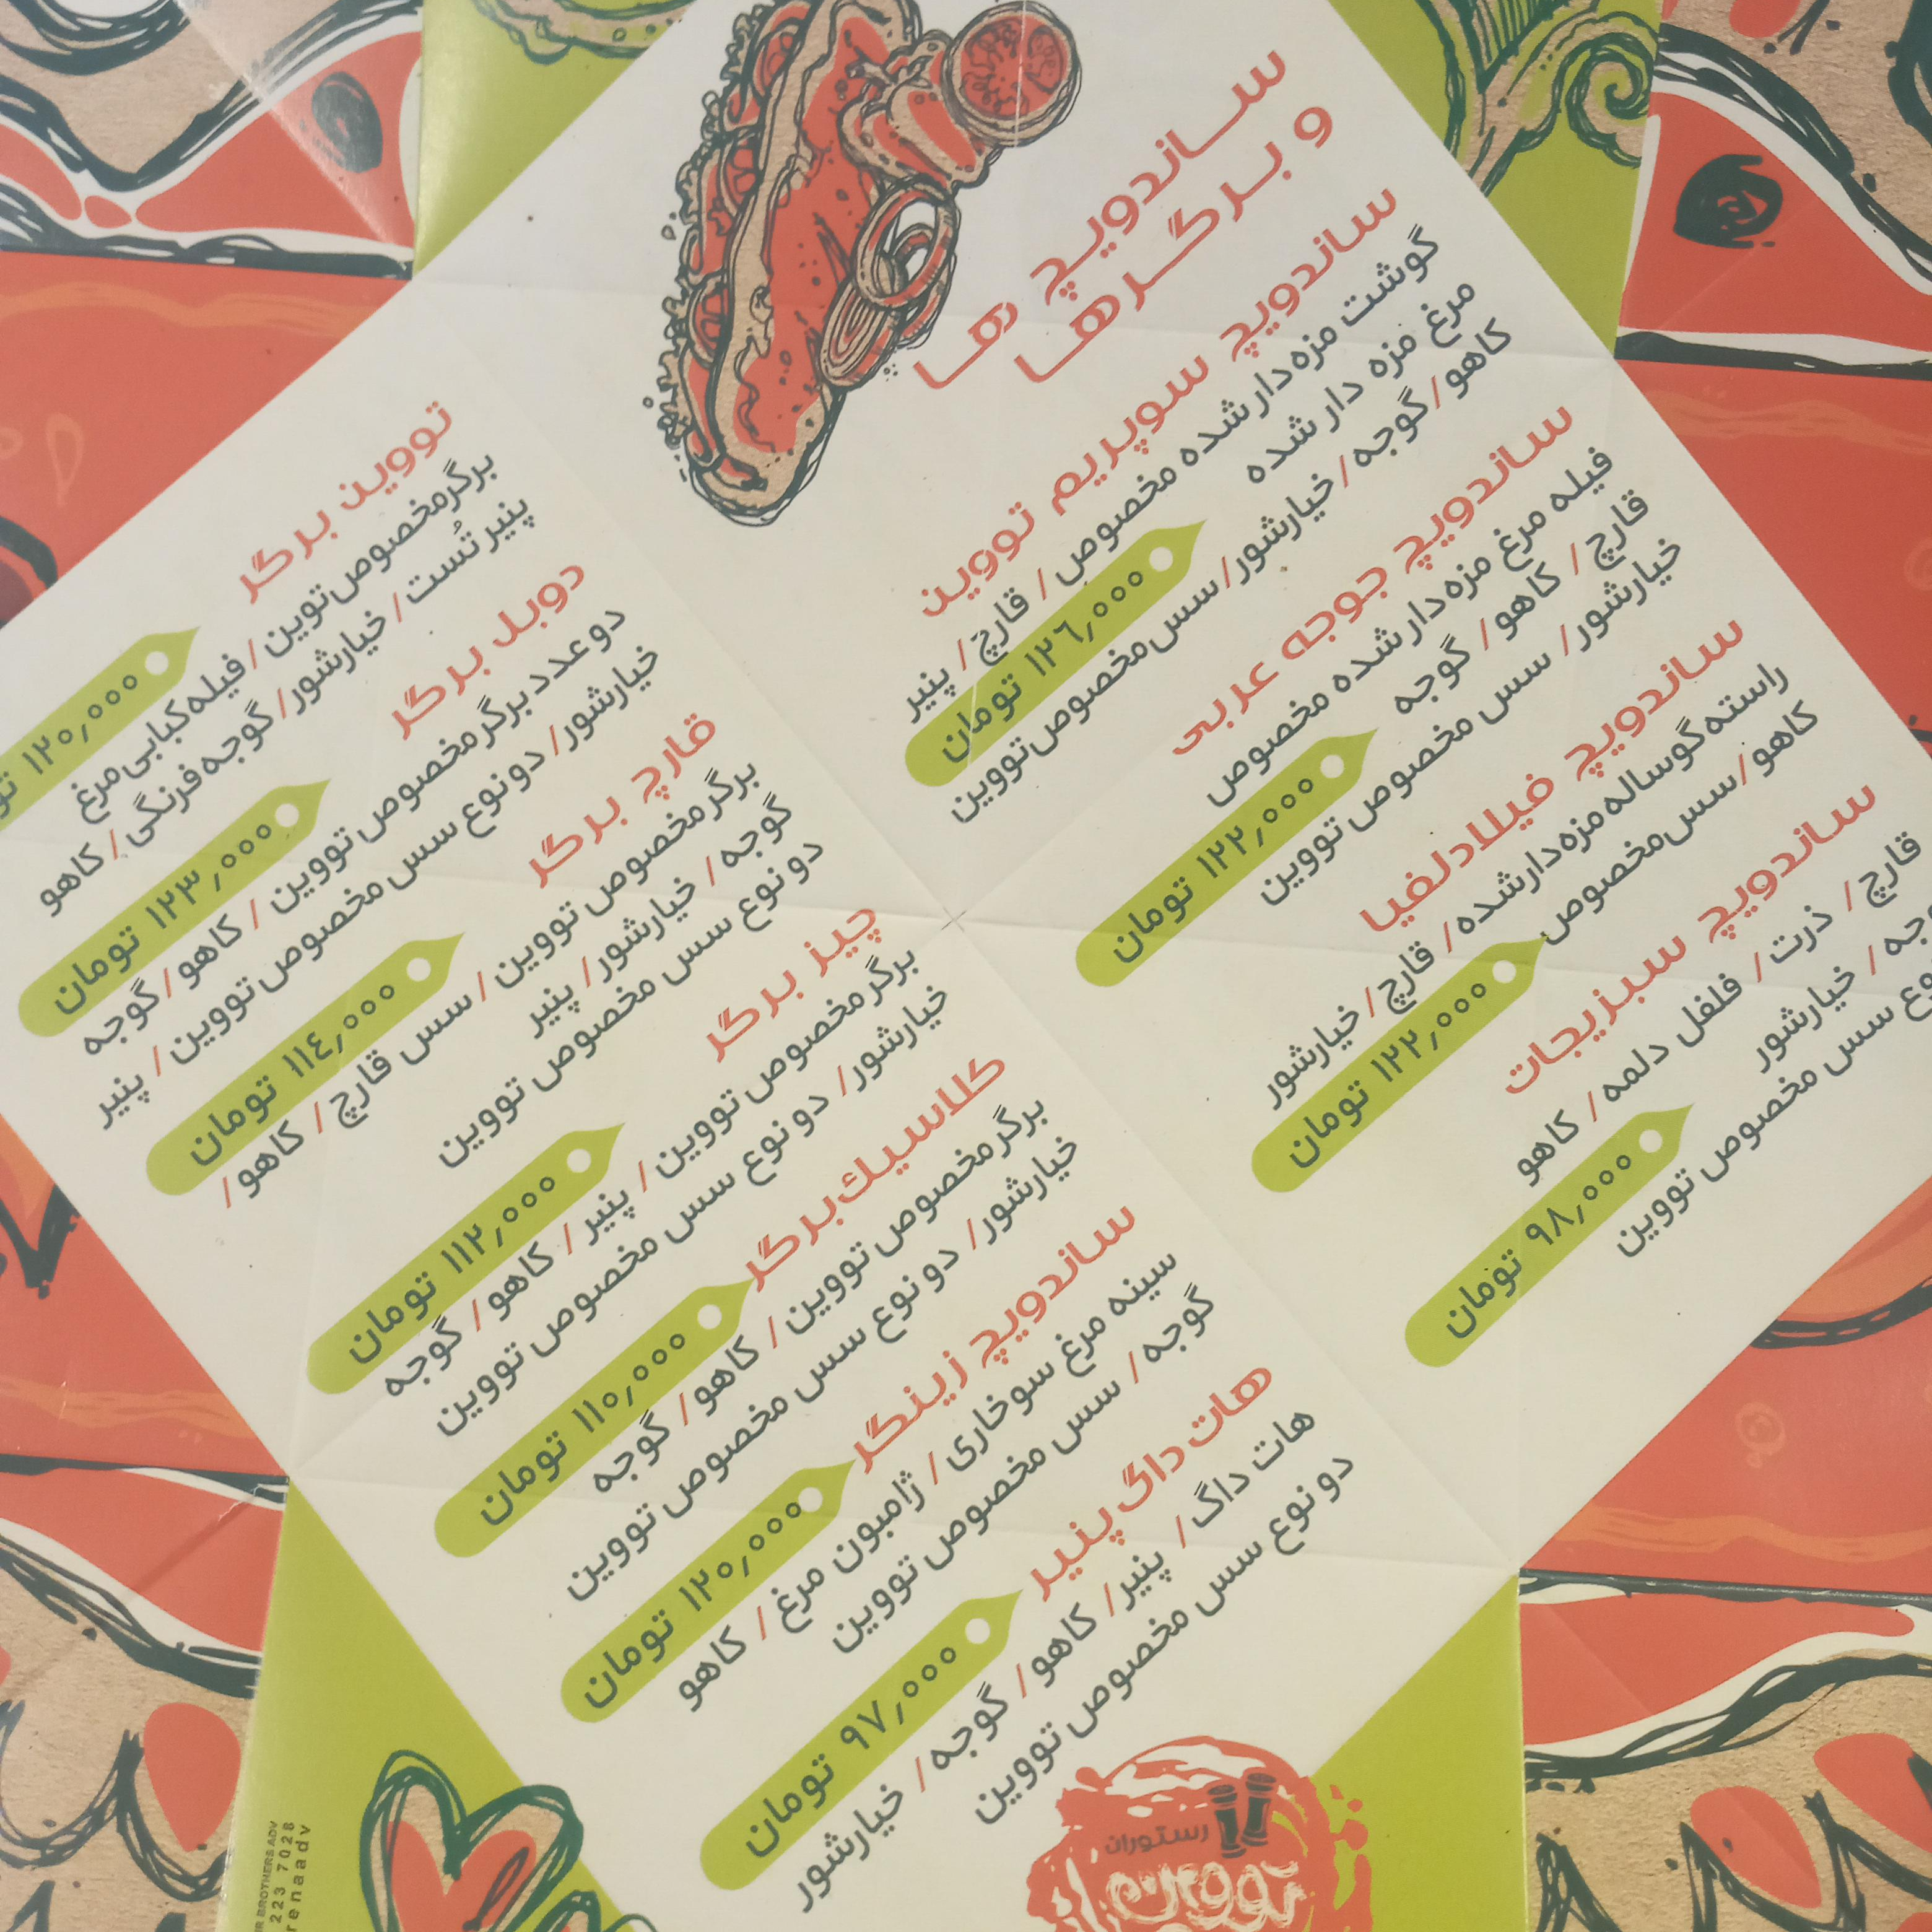 ساندویچ ها
و برگرها
ساندویچ سوپریم تووین
گوشت مزه دار شده مخصوص / قارچ / پنیر
مرغ مزه دار شده
۱۲۶٫۰۰۰ تومان
کاهو / گوجه / خیارشور / سس مخصوص تووین
ساندویچ جوجه عربی
فیله مرغ مزه دار شده مخصوص
قارچ / کاهو / گوجه
۱۲۲٫۰۰۰ تومان
خیارشور / سس مخصوص تووین
ساندویچ فیلادلفیا
راسته گوساله مزه دار شده / قارچ / خیارشور
کاهو / سس مخصوص
۱۲۲٫۰۰۰ تومان
ساندویچ سبزیجات
قارچ / ذرت / فلفل دلمه / کاهو
/ خیارشور
۹۸٫۰۰۰ تومان
سس مخصوص تووین
تووین برگر
برگر مخصوص توین / فیله کبابی مرغ
۱۲۰٫۰۰۰
پنیر تُست / خیارشور / گوجه فرنگی / کاهو
دوبل برگر
دو عدد برگر مخصوص تووین / کاهو / گوجه
۱۲۳٫۰۰۰ تومان
خیارشور / دو نوع سس مخصوص تووین / پنیر
قارچ برگر
برگر مخصوص تووین / سس قارچ / کاهو /
۱۱۴٫۰۰۰ تومان
گوجه / خیارشور / پنیر
دو نوع سس مخصوص تووین
چیز برگر
برگر مخصوص تووین / پنیر / کاهو / گوجه
۱۱۲٫۰۰۰ تومان
خیارشور / دو نوع سس مخصوص تووین
کلاسیك برگر
برگر مخصوص تووین / کاهو / گوجه
۱۱۰٫۰۰۰ تومان
خیارشور / دو نوع سس مخصوص تووین
ساندویچ زینگر
سینه مرغ سوخاری / ژامبون مرغ / کاهو
۱۲۰٫۰۰۰ تومان
گوجه / سس مخصوص تووین
هات داگ پنیر
هات داگ / پنیر / کاهو / گوجه / خیارشور
۹۷٫۰۰۰ تومان
دو نوع سس مخصوص تووین
رستوران
تووین
BROTHERS ADV
223 7028
renaadv